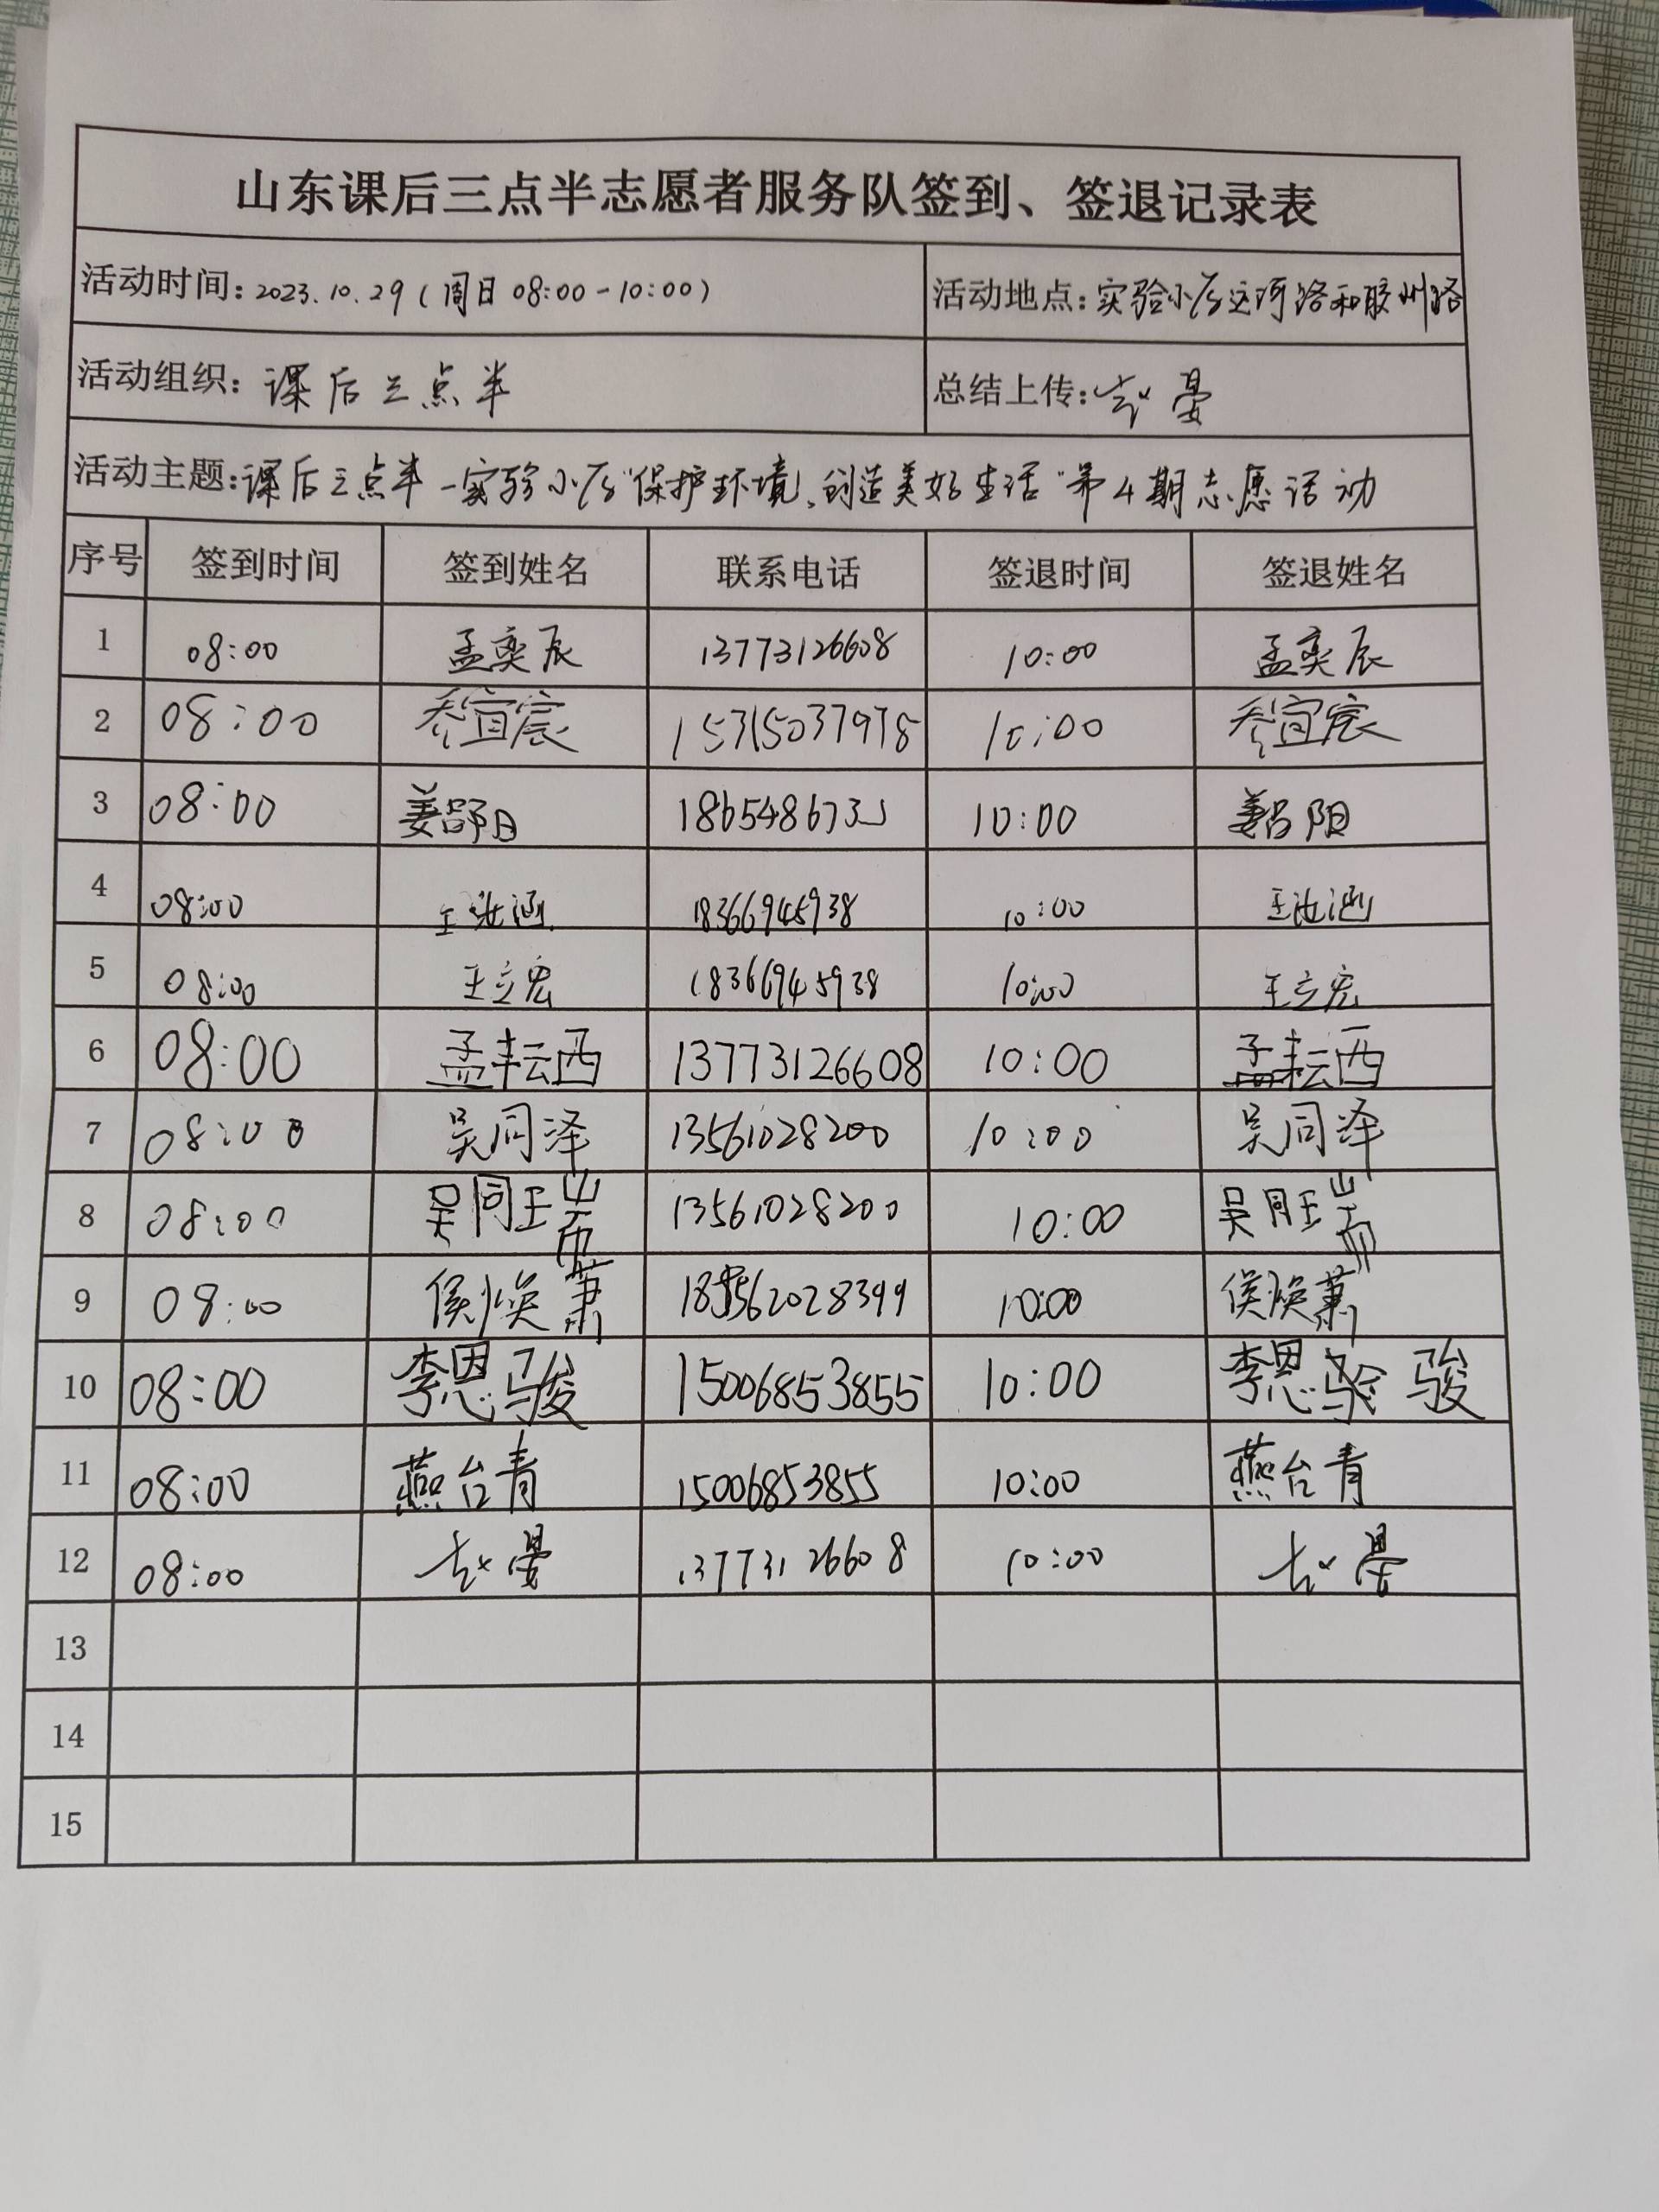 山东课后三点半志愿者服务队签到、签退记录表
活动时间：2023.10.29（周日08:00-10:00） 活动地点：实验小学运河路和胶州路
活动组织：课后三点半 总结上传：赵晏
活动主题：课后三点半-实验小学"保护环境、创造美好生活"第4期志愿活动
序号 签到时间 签到姓名 联系电话 签退时间 签退姓名
1 08:00 孟奕辰 13773126608 10:00 孟奕辰
2 08:00 乔宜宸 15315037978 10:00 乔宜宸
3 08:00 10:00
4 08:00 王汝涵 18366945938 10:00 王汝涵
5 08:00 王立宏 18366945938 10:00 王立宏
6 08:00 孟耘西 13773126608 10:00 孟耘西
7 08:00 吴同泽 13561028200 10:00 吴同泽
8 08:00 吴同瑞 13561028200 10:00 吴同瑞
9 08:00 侯焕萧 18562028399 10:00 侯焕萧
10 08:00 李恩骏 15006853855 10:00 李恩骏
11 08:00 燕台青 15006853855 10:00 燕台青
12 08:00 赵晏 13773126608 10:00 赵晏
13
14
15